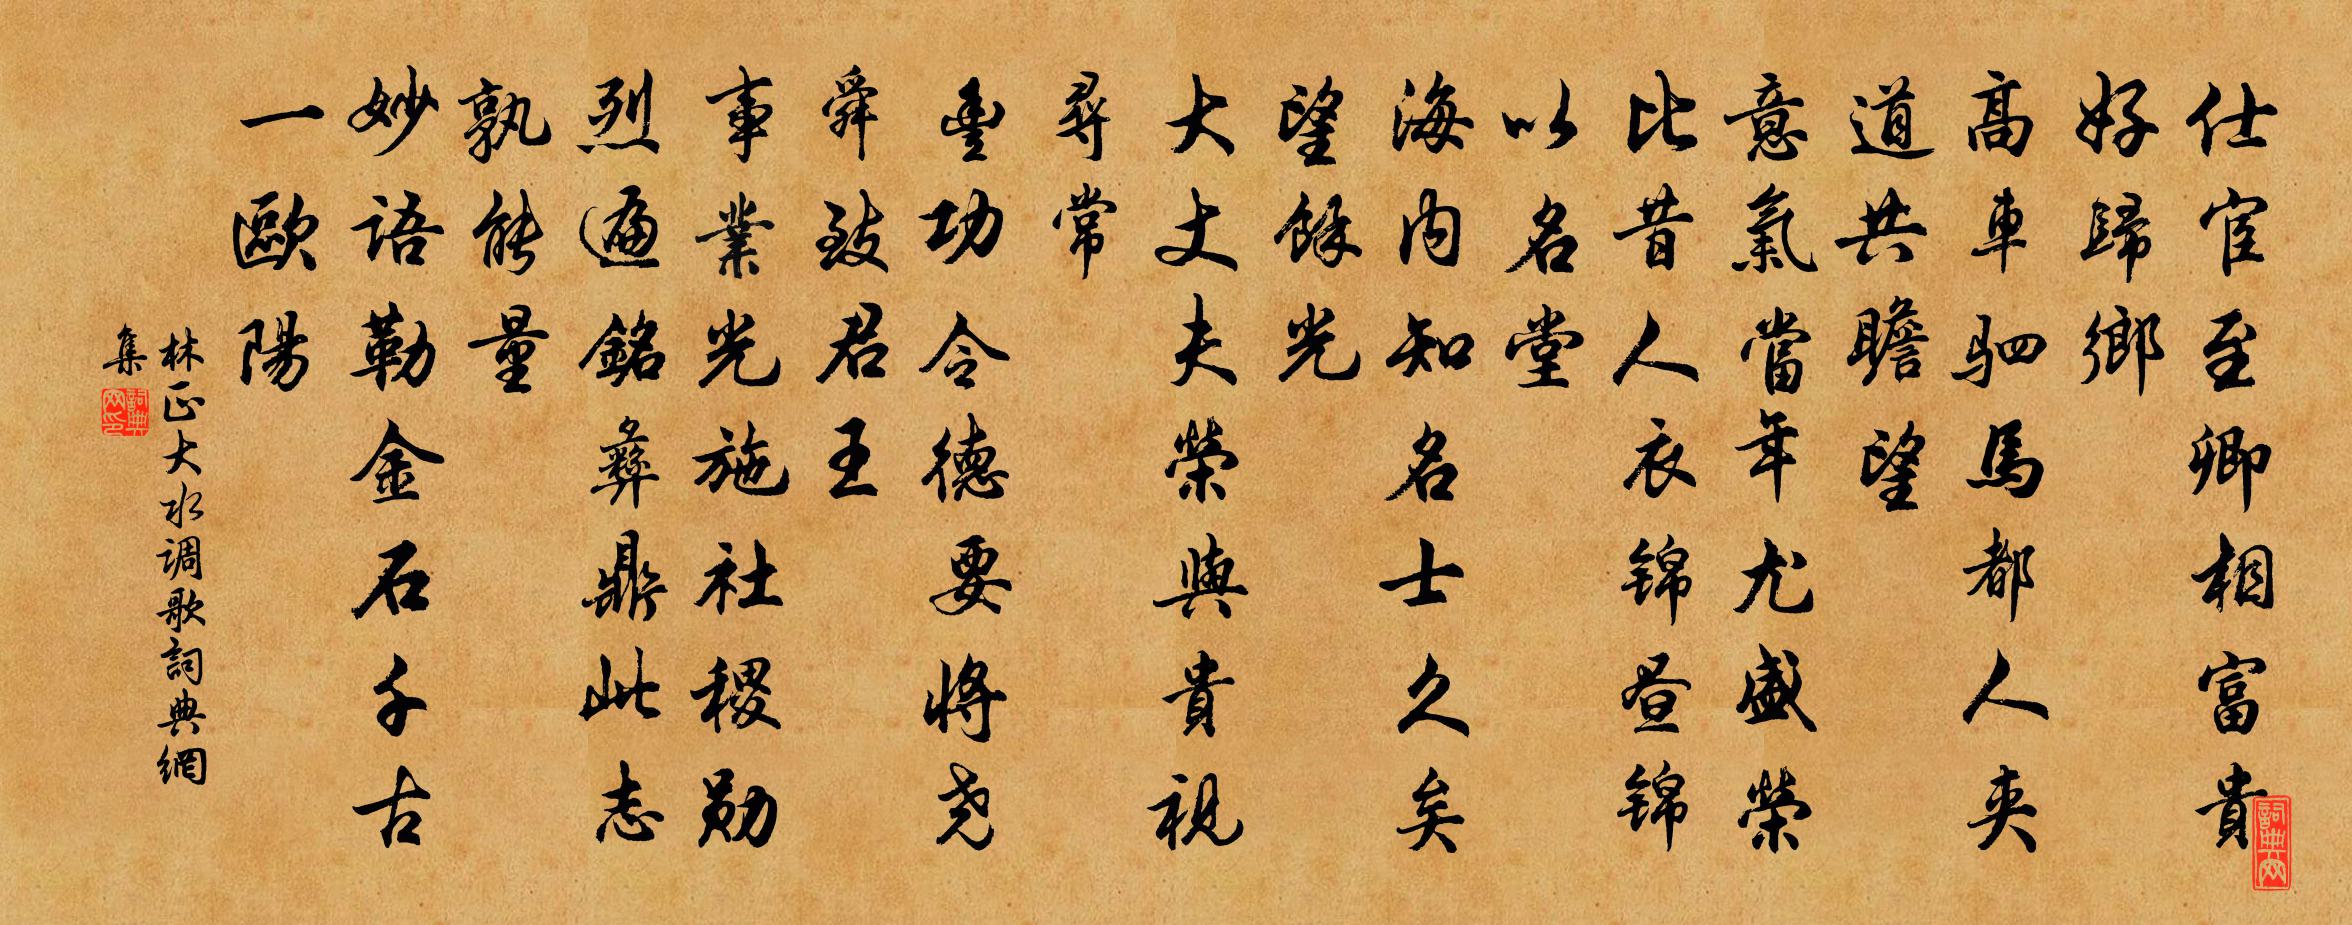 仕宦至卿相富貴
好歸鄉
高車駟馬都人夾
道共瞻望
意氣當年尤盛榮
比昔人衣錦晝錦
以名堂
海內知名士久矣
望餘光
大丈夫榮與貴視
尋常
豐功令德要將堯
舜致君王
事業光施社稷勛
烈遍銘彝鼎此志
孰能量
妙語勒金石千古
一歐陽
林正大水调歌詞典網
集
詞典网印
詞典网